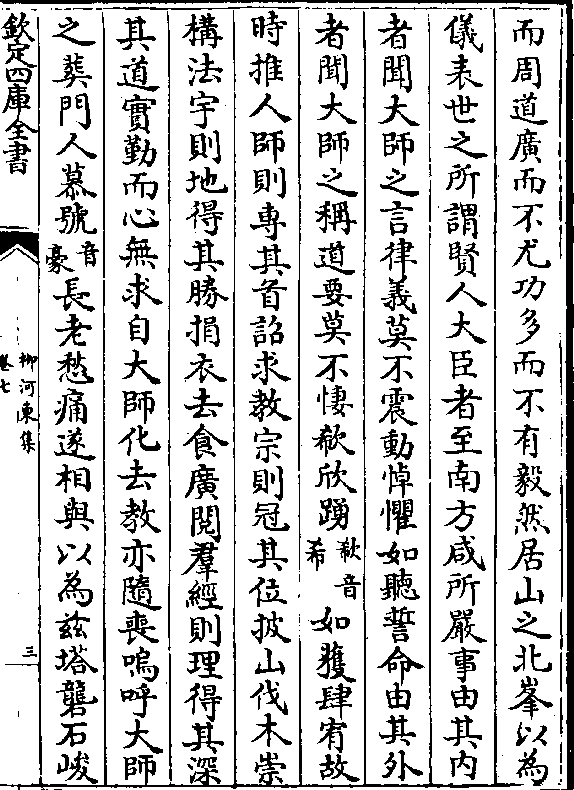 而周道廣而不尤功多而不有毅然居山之北峯以為
儀表世之所謂賢人大臣者至南方咸所嚴事由其内
者聞大師之言律義莫不震動悼懼如聽誓命由其外
者聞大師之稱道要莫不悽欷欣踴欷音希如獲肆宥故
時推人師則專其首詔求教宗則冠其位披山伐木崇
構法宇則地得其勝捐衣去食廣閲羣經則理得其深
其道實勤而心無求自大師化去教亦隨喪嗚呼大師
之葬門人慕號音豪長老愁痛遂相與以為兹塔礱石峻
欽定四庫全書
柳河東集
卷七
三